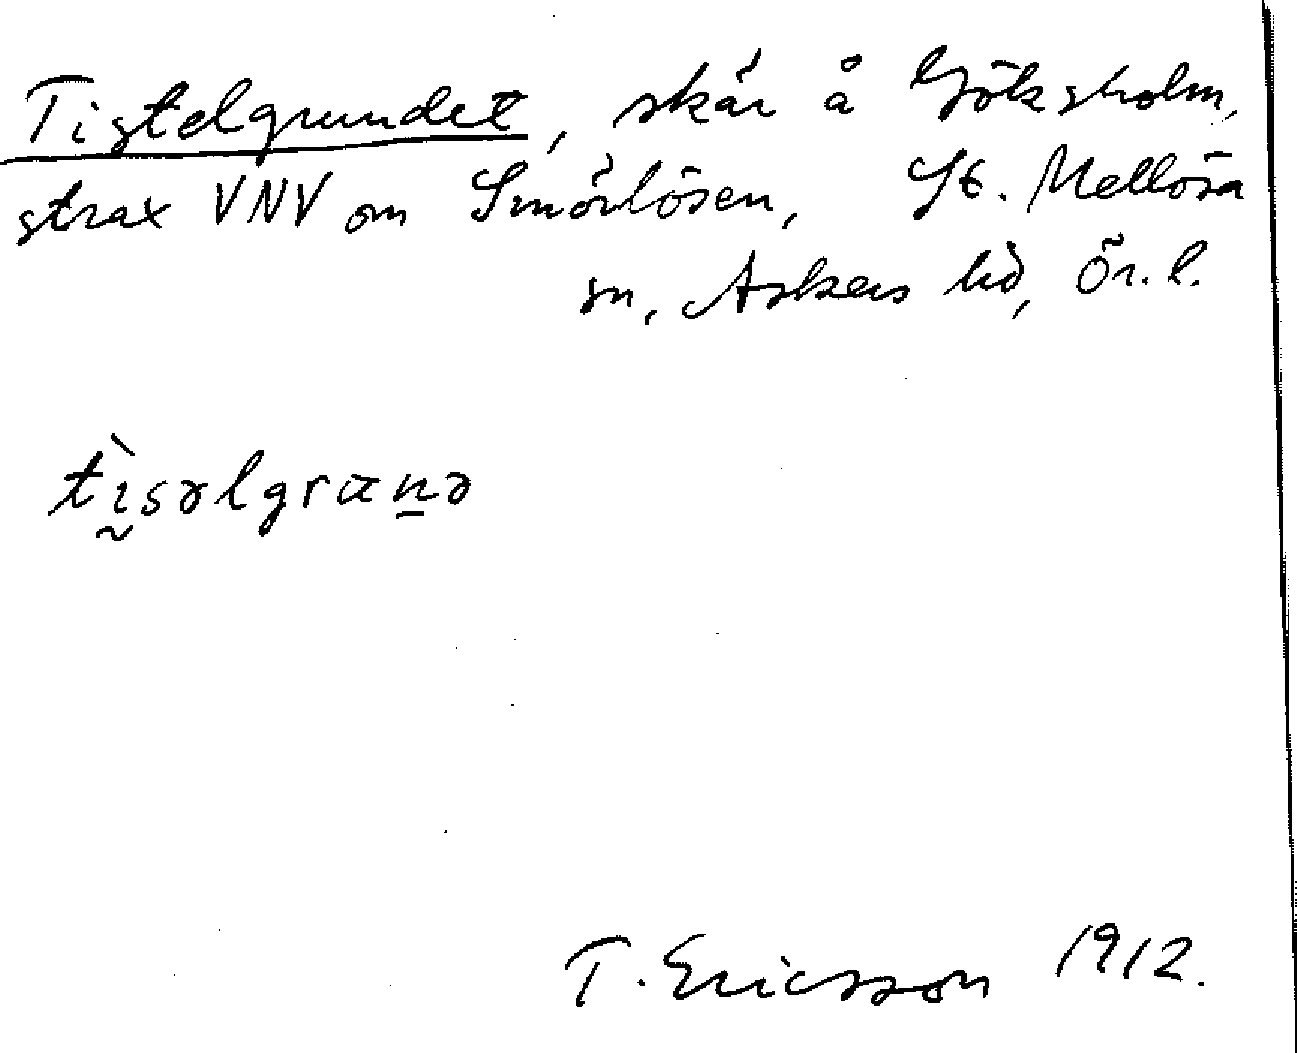 Tistelgrundet, skär å Göksholm,
strax VNV om Smörlösen, St. Mellösa
sn, Askers hd, Ör. l.
tı̰̀səlgrɑn̠ə
T. Ericsson 1912.